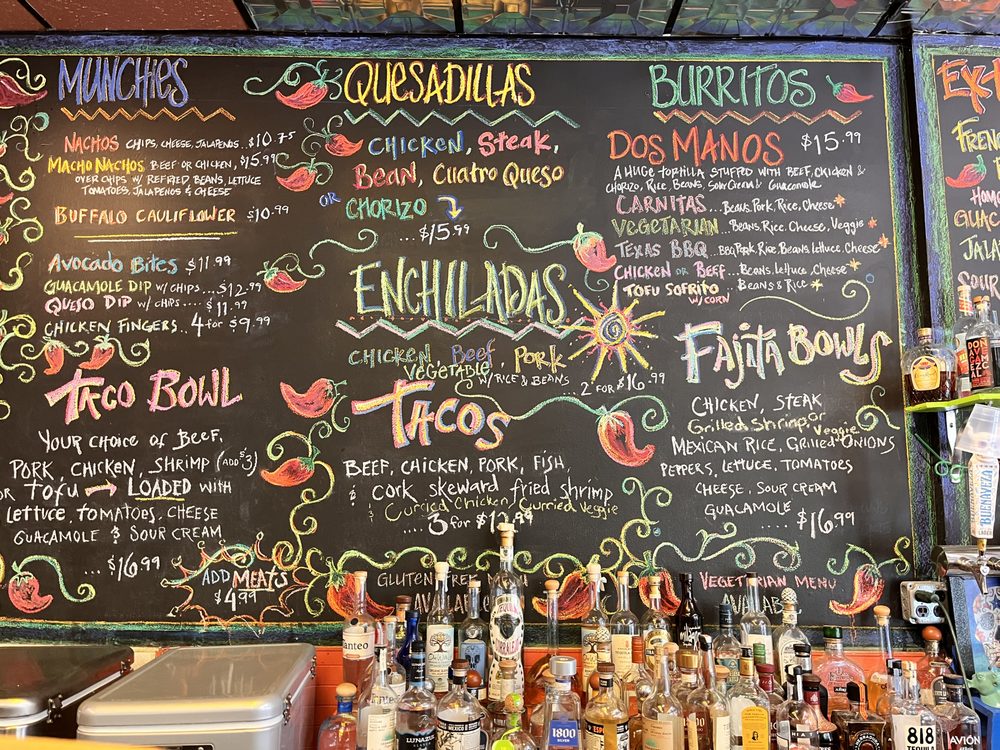 MUNCHIES
NACHOS CHIPS, CHEESE, JALAPENOS.. $10.75
MACHO NACHOS BEEF OR CHICKEN, $15.99
OVER CHIPS W/ REFRIED BEANS, LETTUCE
TOMATOES, JALAPENOS & CHEESE
BUFFALO CAULIFLOWER $10.99
AVOCADO BITES $11.99
GUACAMOLE DIP W/ CHIPS.... $12.99
QUESO DIP W/ CHIPS.... $11.99
CHICKEN FINGERS.. 4 for $9.99
TACO BOWL
YOUR CHOICE of BEEF,
PORK, CHICKEN, SHRIMP (ADD $3)
OR TOFU → LOADED WITH
LETTUCE, TOMATOES, CHEESE
GUACAMOLE & SOUR CREAM
... $16.99
ADD MEATS
$4.99
QUESADILLAS
CHICKEN, STEAK,
BEAN, CUATRO QUESO
OR CHORIZO
... $15.99
ENCHILADAS
CHICKEN, BEEF, PORK
VEGETABLE
W/ RICE & BEANS .. 2 FOR $16.99
TACOS
BEEF, CHICKEN, PORK, FISH,
& cork skeward fried shrimp
& Curried Chicken, Curried Veggie
.... 3 for $13.99
GLUTEN FREE MENU
AVAILABLE
BURRITOS
DOS MANOS $15.99
A HUGE TORTILLA STUFFED WITH BEEF, CHICKEN &
CHORIZO, RICE, BEANS, SOUR CREAM & GUACAMOLE
CARNITAS... Beans, Pork, Rice, Cheese
VEGETARIAN... Beans, Rice, Cheese, Veggie
TEXAS BBQ.. BBQ Pork, Rice, Beans, Lettuce, Cheese
CHICKEN OR BEEF... Beans, Lettuce, Cheese
TOFU SOFRITO Beans & Rice
W/ CORN
FAJITA BOWLS
CHICKEN, STEAK
Grilled Shrimp, or Veggie
MEXICAN RICE, GRILLED ONIONS
PEPPERS, LETTUCE, TOMATOES
CHEESE, SOUR CREAM
GUACAMOLE
.... $16.99
VEGETARIAN MENU
AVAILABLE
EXT
FREN
GUAC
JALA
SOUR
BUENAVEZA
1800
SILVER
818
TEQUILA
AVIÓN